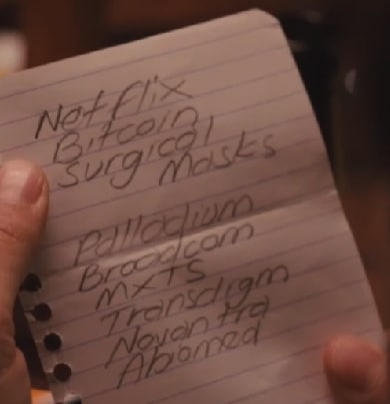 Netflix
Bitcoin
Surgical
Masks
Palladium
Broadcom
MXTS
Transdigm
Novantra
Abiomed